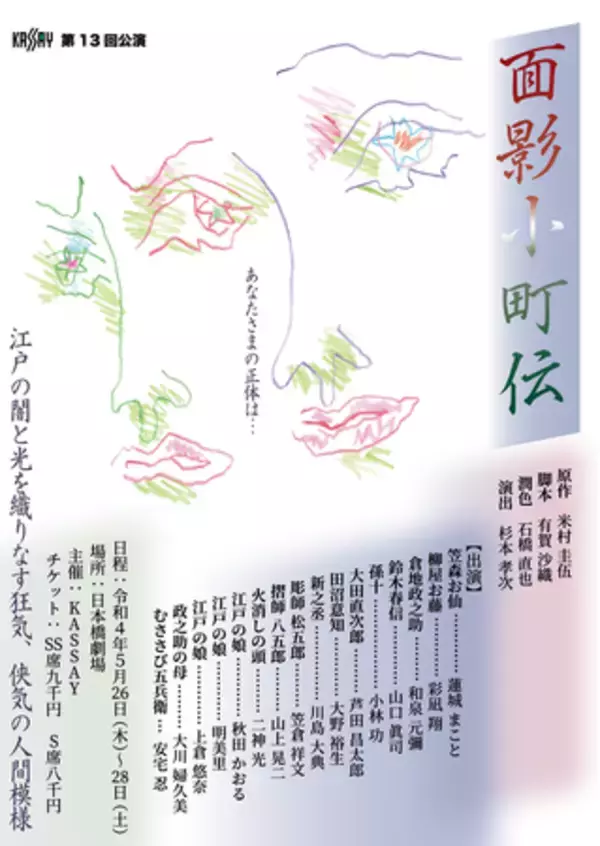 KASSAY 第13回公演
面影小町伝
あなたさまの正体は…
江戸の闇と光を織りなす狂気、侠気の人間模様
原作 米村 圭伍
脚本 有賀 沙織
潤色 石橋 直也
演出 杉本 孝次
【出演】
笠森お仙…………蓮城 まこと
柳屋お藤…………彩凪 翔
倉地政之助………和泉 元彌
鈴木春信…………山口 眞司
孫十………………小林 功
大田直次郎………芦田 昌太郎
田沼意知…………大野 裕生
新之丞……………川島 大典
彫師 松五郎………笠倉 祥文
摺師 八五郎………山上 晃二
火消しの頭………二神 光
江戸の娘…………秋田 かおる
江戸の娘…………明美里
江戸の娘…………上倉 悠奈
政之助の母………大川 婦久美
むささび五兵衛… 安宅 忍
日程：令和4年5月26日（木）〜28日（土）
場所：日本橋劇場
主催：KASSAY
チケット：SS席九千円 S席八千円